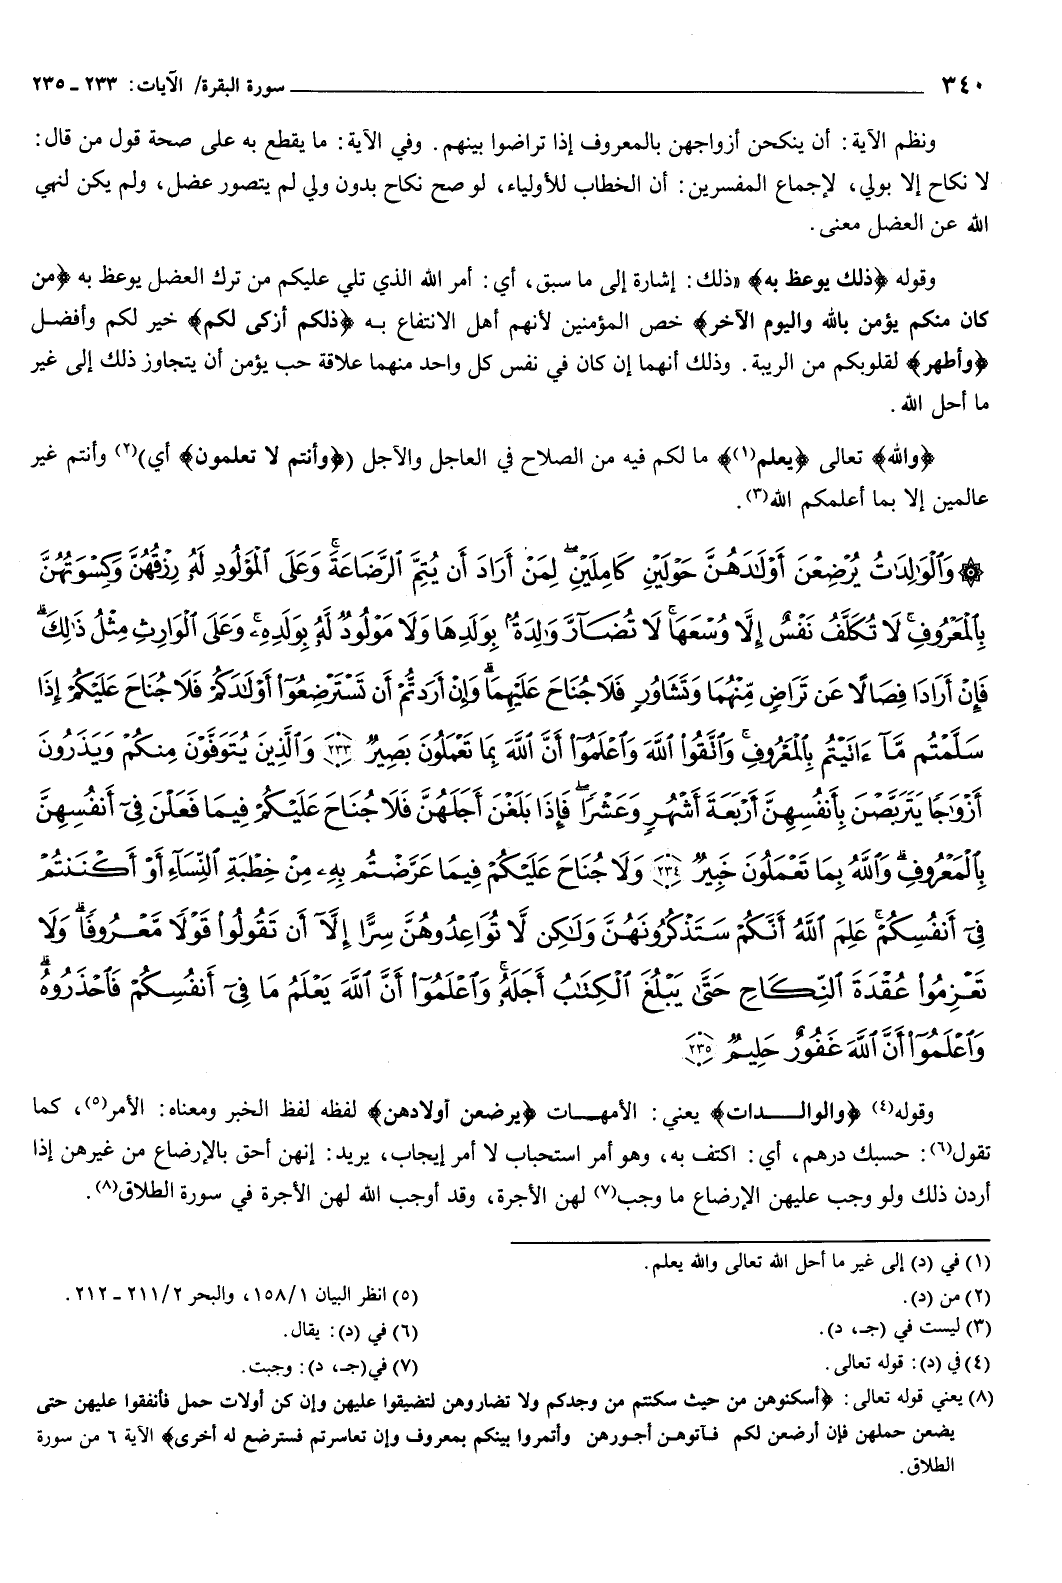 ٣٤٠ سورة البقرة/ الآيات: ٢٣٣ ـ ٢٣٥
ونظم الآية: أن ينكحن أزواجهن بالمعروف إذا تراضوا بينهم. وفي الآية: ما يقطع به على صحة قول من قال:
لا نكاح إلا بولي، لإجماع المفسرين: أن الخطاب للأولياء، لو صح نكاح بدون ولي لم يتصور عضل، ولم يكن لنهي
الله عن العضل معنى.
وقوله ﴿ذلك يوعظ به﴾ «ذلك: إشارة إلى ما سبق، أي: أمر الله الذي تلي عليكم من ترك العضل يوعظ به ﴿من
كان منكم يؤمن بالله واليوم الآخر﴾ خص المؤمنين لأنهم أهل الانتفاع بـه ﴿ذلكم أزكى لكم﴾ خير لكم وأفضـل
﴿وأطهر﴾ لقلوبكم من الريبة. وذلك أنهما إن كان في نفس كل واحد منهما علاقة حب يؤمن أن يتجاوز ذلك إلى غير
ما أحل الله.
﴿والله﴾ تعالى ﴿يعلم(١)﴾ ما لكم فيه من الصلاح في العاجل والآجل (﴿وأنتم لا تعلمون﴾ أي)(٢) وأنتم غير
عالمين إلا بما أعلمكم الله(٣).
۞ وَٱلْوَٰلِدَٰتُ يُرْضِعْنَ أَوْلَٰدَهُنَّ حَوْلَيْنِ كَامِلَيْنِ ۖ لِمَنْ أَرَادَ أَن يُتِمَّ ٱلرَّضَاعَةَ ۚ وَعَلَى ٱلْمَوْلُودِ لَهُۥ رِزْقُهُنَّ وَكِسْوَتُهُنَّ
بِٱلْمَعْرُوفِ ۚ لَا تُكَلَّفُ نَفْسٌ إِلَّا وُسْعَهَا ۚ لَا تُضَآرَّ وَٰلِدَةٌۢ بِوَلَدِهَا وَلَا مَوْلُودٌ لَّهُۥ بِوَلَدِهِۦ ۚ وَعَلَى ٱلْوَارِثِ مِثْلُ ذَٰلِكَ ۗ
فَإِنْ أَرَادَا فِصَالًا عَن تَرَاضٍ مِّنْهُمَا وَتَشَاوُرٍ فَلَا جُنَاحَ عَلَيْهِمَا ۗ وَإِنْ أَرَدتُّمْ أَن تَسْتَرْضِعُوٓا۟ أَوْلَٰدَكُمْ فَلَا جُنَاحَ عَلَيْكُمْ إِذَا
سَلَّمْتُم مَّآ ءَاتَيْتُم بِٱلْمَعْرُوفِ ۗ وَٱتَّقُوا۟ ٱللَّهَ وَٱعْلَمُوٓا۟ أَنَّ ٱللَّهَ بِمَا تَعْمَلُونَ بَصِيرٌ ٢٣٣ وَٱلَّذِينَ يُتَوَفَّوْنَ مِنكُمْ وَيَذَرُونَ
أَزْوَٰجًا يَتَرَبَّصْنَ بِأَنفُسِهِنَّ أَرْبَعَةَ أَشْهُرٍ وَعَشْرًا ۖ فَإِذَا بَلَغْنَ أَجَلَهُنَّ فَلَا جُنَاحَ عَلَيْكُمْ فِيمَا فَعَلْنَ فِىٓ أَنفُسِهِنَّ
بِٱلْمَعْرُوفِ ۗ وَٱللَّهُ بِمَا تَعْمَلُونَ خَبِيرٌ ٢٣٤ وَلَا جُنَاحَ عَلَيْكُمْ فِيمَا عَرَّضْتُم بِهِۦ مِنْ خِطْبَةِ ٱلنِّسَآءِ أَوْ أَكْنَنتُمْ
فِىٓ أَنفُسِكُمْ ۚ عَلِمَ ٱللَّهُ أَنَّكُمْ سَتَذْكُرُونَهُنَّ وَلَٰكِن لَّا تُوَاعِدُوهُنَّ سِرًّا إِلَّآ أَن تَقُولُوا۟ قَوْلًا مَّعْرُوفًا ۗ وَلَا
تَعْزِمُوا۟ عُقْدَةَ ٱلنِّكَاحِ حَتَّىٰ يَبْلُغَ ٱلْكِتَٰبُ أَجَلَهُۥ ۚ وَٱعْلَمُوٓا۟ أَنَّ ٱللَّهَ يَعْلَمُ مَا فِىٓ أَنفُسِكُمْ فَٱحْذَرُوهُ ۚ
وَٱعْلَمُوٓا۟ أَنَّ ٱللَّهَ غَفُورٌ حَلِيمٌ ٢٣٥
وقوله(٤) ﴿والوالـدات﴾ يعني: الأمهـات ﴿يرضعن أولادهن﴾ لفظه لفظ الخبر ومعناه: الأمر(٥)، كما
تقول(٦): حسبك درهم، أي: اكتف به، وهو أمر استحباب لا أمر إيجاب، يريد: إنهن أحق بالإرضاع من غيرهن إذا
أردن ذلك ولو وجب عليهن الإرضاع ما وجب(٧) لهن الأجرة، وقد أوجب الله لهن الأجرة في سورة الطلاق(٨).
(١) في (د) إلى غير ما أحل الله تعالى والله يعلم.
(٢) من (د).
(٣) ليست في (جـ، د).
(٤) في (د): قوله تعالى.
(٥) انظر البيان ١/١٥٨، والبحر ٢/٢١١ ـ ٢١٢.
(٦) في (د): يقال.
(٧) في(جـ، د): وجبت.
(٨) يعني قوله تعالى: ﴿أسكنوهن من حيث سكنتم من وجدكم ولا تضاروهن لتضيقوا عليهن وإن كن أولات حمل فأنفقوا عليهن حتى
يضعن حملهن فإن أرضعن لكم فـآتوهـن أجـورهن وأتمروا بينكم بمعروف وإن تعاسرتم فسترضع له أخرى﴾ الآية ٦ من سورة
الطلاق.